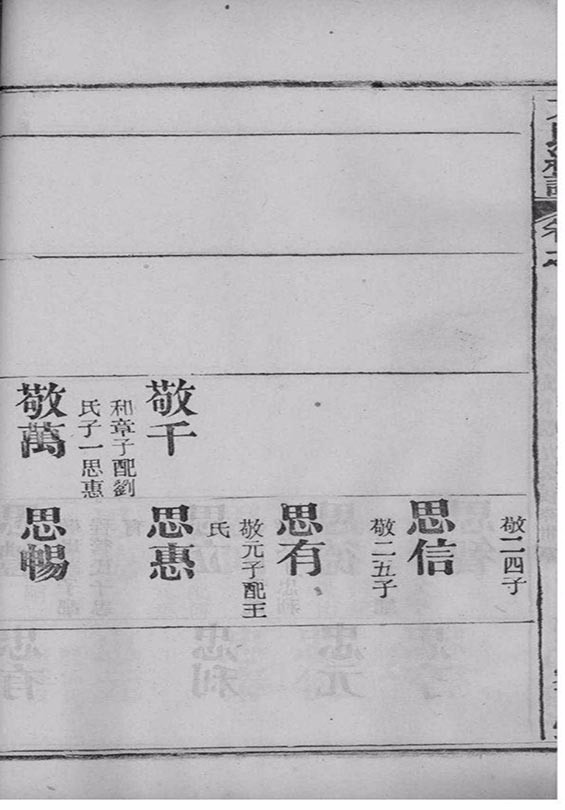 敬千
和章子配劉
氏子一思惠
敬萬
敬二四子
思信
敬二五子
思有
敬元子配王
氏
思惠
思暢